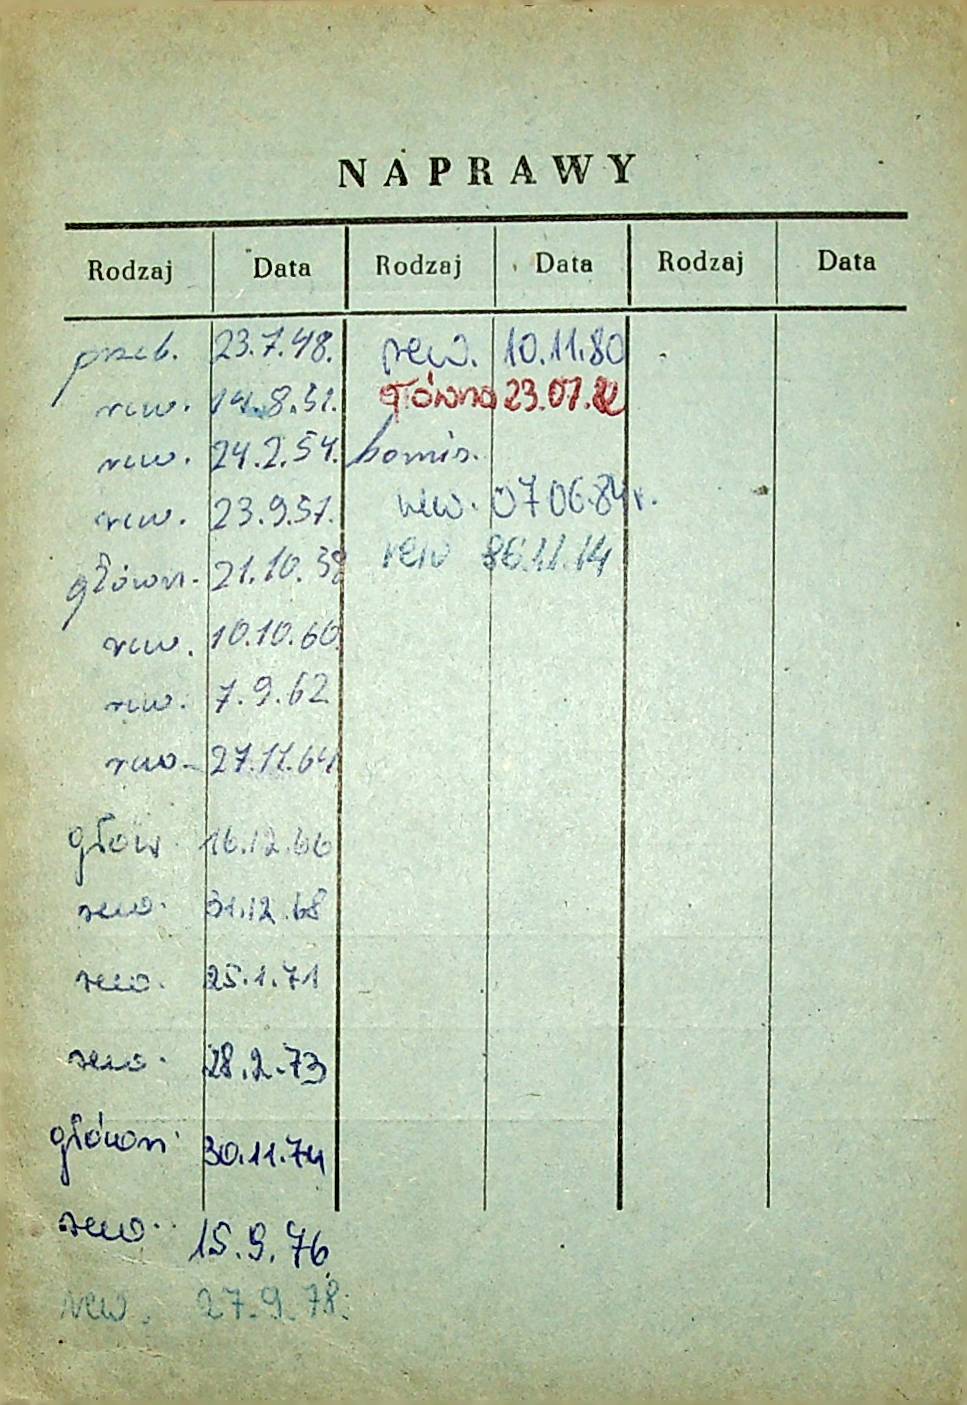 NAPRAWY
Rodzaj Data Rodzaj Data Rodzaj Data
przeb. 23.7.48.
rew. 14.8.51.
rew. 24.2.54.
rew. 23.9.57.
główn. 21.10.58
rew. 10.10.60
rew. 7.9.62
rew. 27.11.64
głów. 16.12.66
rew. 31.12.68
rew. 25.1.71
rew. 28.2.73
główn. 30.11.74
rew. 15.9.76
rew. 27.9.78.
rew. 10.11.80
główna 23.07.82
rew. 07 06.84r.
rew 86.11.14